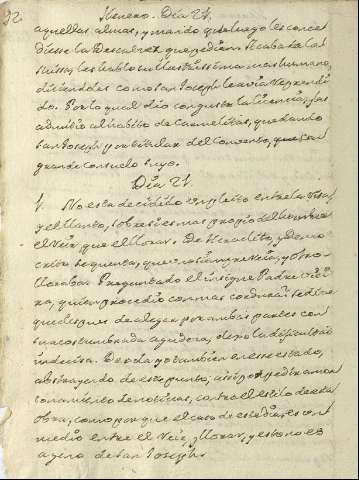 92.
Henero. Dia 21.
aquellas almas, y mando que luego les concediesse la Descalcez que pedian. Acabada la
Missa, les hablo su Illustrissima mas humano,
diciendoles como San Joseph le avia reprendido. Por lo qual dio con gusto la licencia, y las
admitio al habito de Carmelitas, quedando
San Joseph por titular del Convento, que con
grande consuelo suyo.
Dia 21.
1. No esta decidido el pleito entre la Risa,
y el llanto, sobre si es mas propio del hombre
el Reir, que el llorar. De Heraclito, y Democrito se quenta, que uno siempre reia, y otro
lloraba. Preguntado el insigne Padre Vieira, quien procedio con mas cordura? se dice
que despues de alegar por ambas partes con
su acostumbrada agudeza, dexo la dificultad
indecisa. Dexola yo tambien en esse estado,
abstrayendo de este punto, assi por pedir
de noticias, contra el estilo de esta
obra, como por que el caso de este dia, es un
medio entre el Reir, y llorar, y esto no es
ageno de San Joseph.